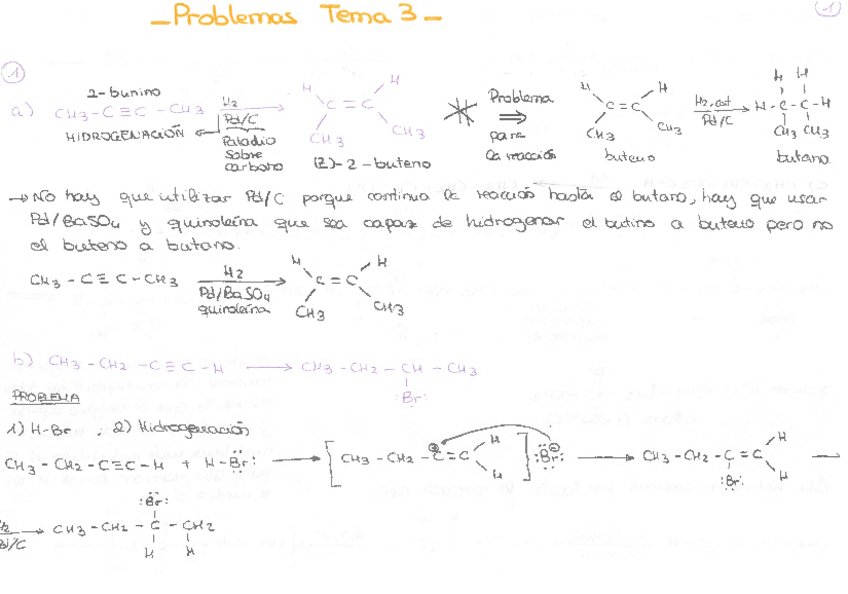 Problemas Tema 3
1
1
a) CH3 - C ≡ C - CH3
2-bunino
HIDROGENACIÓN
H2
Pd/C
Paladio
sobre
carbono
H H
C = C
CH3 CH3
(Z)-2-buteno
Problema
para
la reacción
H H
C = C
CH3 CH3
buteno
H2, cat
Pd/C
H H
H - C - C - H
CH3 CH3
butano
→ No hay que utilizar Pd/C porque continua la reacción hasta el butano, hay que usar
Pd/BaSO4 y quinoleína que sea capaz de hidrogenar el butino a buteno pero no
el buteno a butano.
CH3 - C ≡ C - CH3
H2
Pd/BaSO4
quinoleína
H H
C = C
CH3 CH3
b) CH3 - CH2 - C ≡ C - H → CH3 - CH2 - CH - CH3
:Br:
PROBLEMA
1) H-Br ; 2) Hidrogenación
CH3 - CH2 - C ≡ C - H + H - Br: → [CH3 - CH2 - C = C H H] :Br: → CH3 - CH2 - C = C H H
:Br:
H2
:Br:
CH3 - CH2 - C - CH2
H H